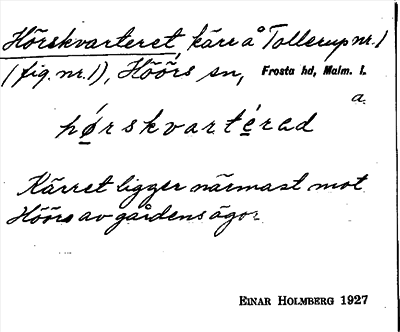 Hörskvarteret, kärr å Tollerup nr. 1
(fig. nr. 1), Höörs sn, Frosta hd, Malm. l.
a.
hǿrskvartérad
Kärret ligger närmast mot
Höörs av gårdens ägor.
EINAR HOLMBERG 1927